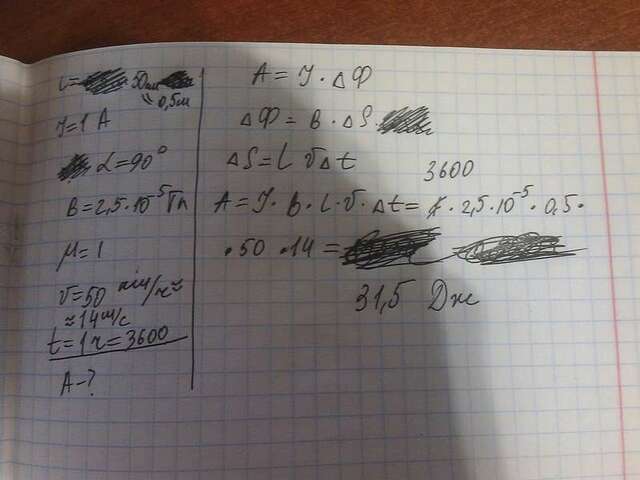 l= 50см
= 0,5м
I=1 А
α=90°
B=2,5·10⁻⁵Тл
μ=1
v=50 км/ч≈
≈14м/с
t=1ч=3600
A-?
A = I·ΔФ
ΔФ= B·ΔS·
ΔS= l vΔt
3600
A= I·B·l·v·Δt= 1·2,5·10⁻⁵·0,5·
·50·14=
31,5 Дж